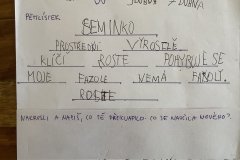 PĚTILÍSTEK
SEMINKO
PROSTŘEDNÍ VYROSTLÉ
KLÍČÍ ROSTE POHYBUJE SE
MOJE FAZOLE NEMÁ FAZOLI.
ROSTE
NAKRESLI A NAPIŠ, CO TĚ PŘEKVAPILO. CO SE NAUČILA NOVÉHO?